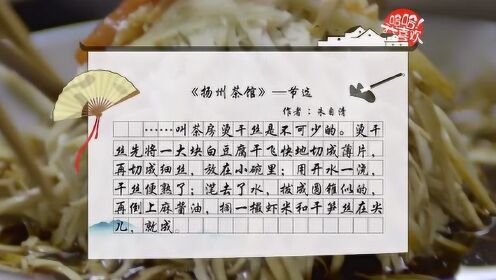 哈哈!
太喜欢
《扬州茶馆》—节选
作者:朱自清
……叫茶房烫干丝是不可少的。烫干
丝先将一大块白豆腐干飞快地切成薄片,
再切成细丝,放在小碗里;用开水一浇,
干丝便熟了;滗去了水,拔成圆锥似的,
再倒上麻酱油,搁一撮虾米和干笋丝在尖
儿,就成。